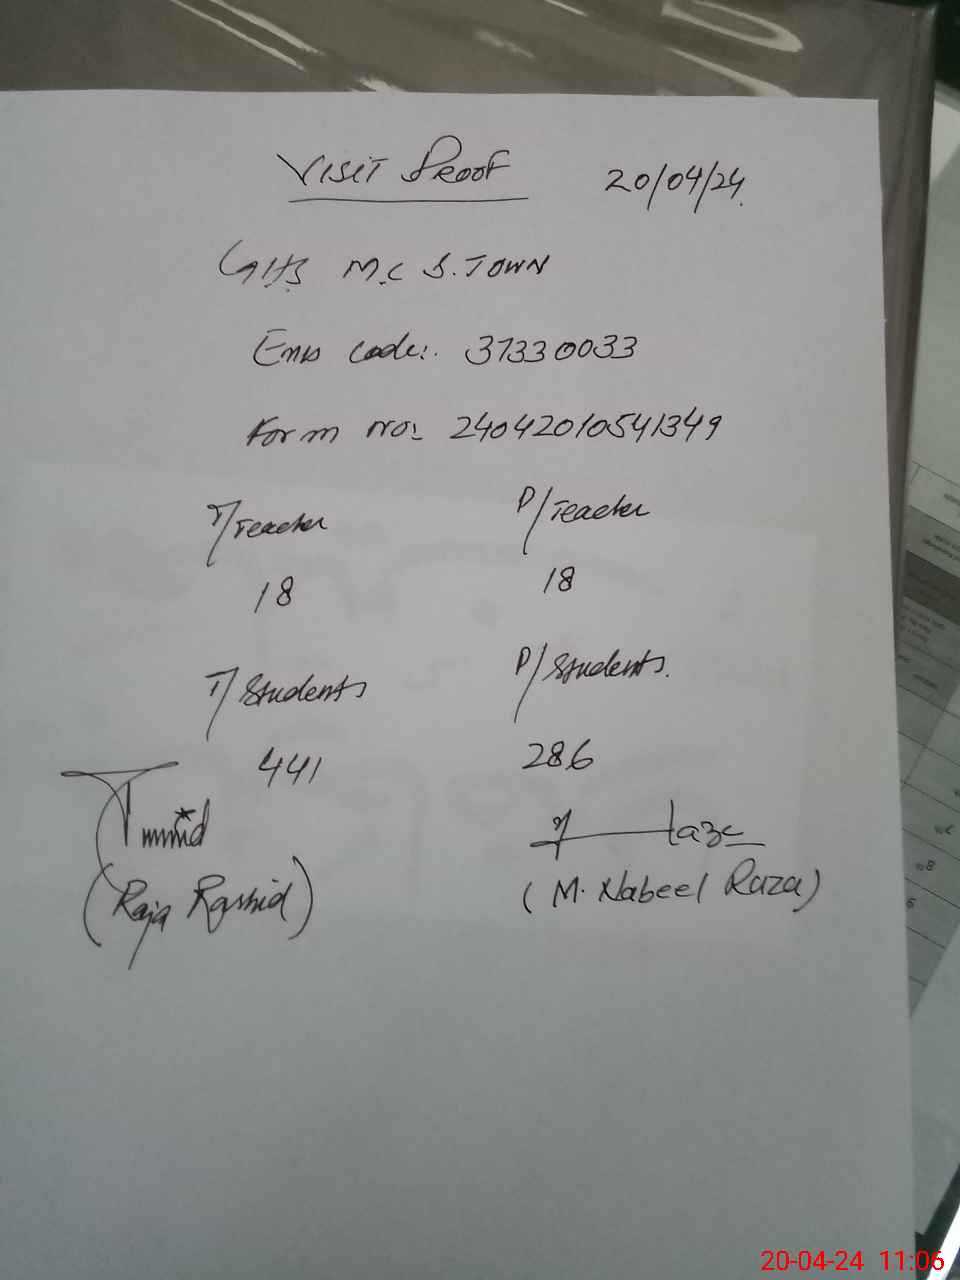 Visit Proof 20/04/24.
GHS M.C S.TOWN
Emis code:. 37330033
Form no: 24042010541349
T/Teacher P/Teacher
18 18
T/Students P/Students.
441 286
(Raja Rashid) (M. Nabeel Raza)
20-04-24 11:06